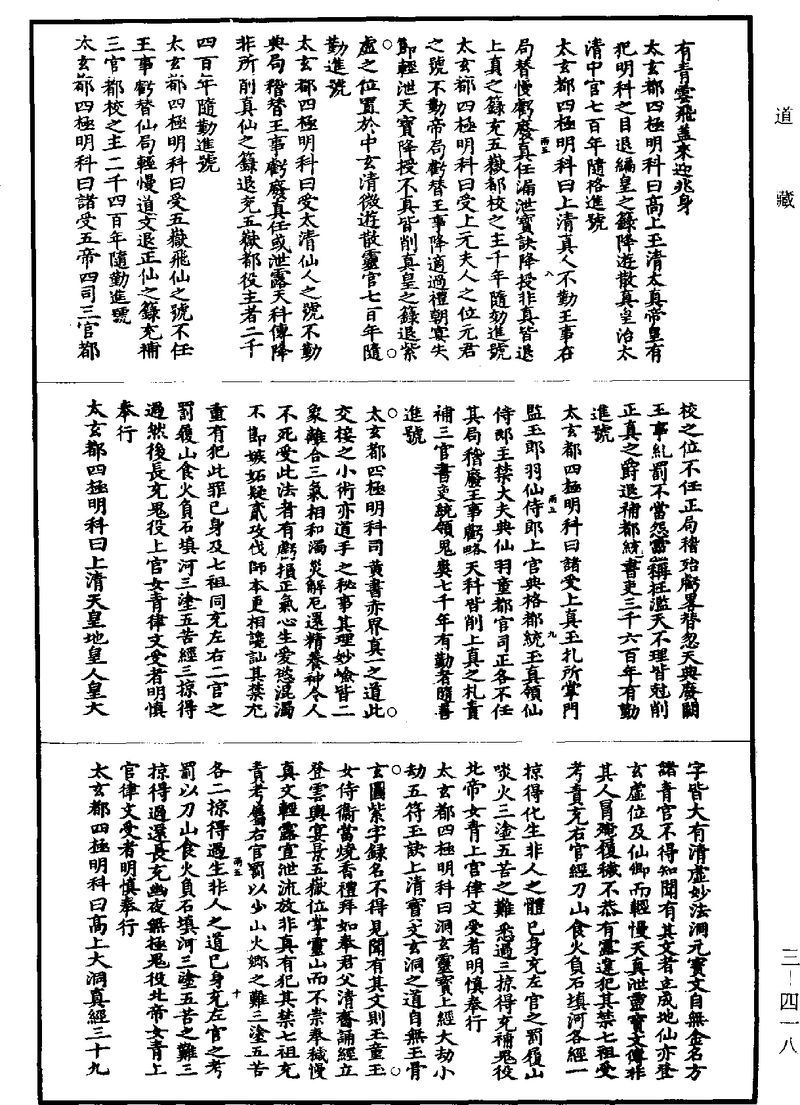 道藏
有青雲飛蓋來迎兆身
太玄都四極明科曰高上玉清太真帝皇有
犯明科之目退編皇之籙降遊散真皇治太
清中官七百年隨格進號
太玄都四極明科曰上清真人不勤王事在
局替慢虧廢真任漏泄寶訣降授非真皆退
上真之籙充五嶽都校之主千年隨勤進號
太玄都四極明科曰受上元夫人之位元君
之號不勤帝局虧替王事降適過禮朝宴失
節輕泄天寶降授不真皆削真皇之籙退紫
虛之位置於中玄清微遊散靈官七百年隨
勤進號
太玄都四極明科曰受太清仙人之號不勤
典局稽替王事虧廢真任或泄露天科傳降
非所削真仙之籙退充五嶽都役主者二千
四百年隨勤進號
太玄都四極明科曰受五嶽飛仙之號不任
王事虧替仙局輕慢道文退正仙之籙充補
三官都校之主二千四百年隨勤進號
太玄都四極明科曰諸受五帝四司三官都
校之位不任正局稽殆虧畧替忽天典廢闕
王事糺罰不當怨靈稱枉濫天不理皆尅削
正真之爵退補都統書吏三千六百年有勤
進號
太玄都四極明科曰諸受上真玉札所掌門
監玉郎羽仙侍郎上官典格都統玉真領仙
侍郎主禁大夫典仙羽童都官司正各不任
其局稽廢王事虧略天科皆削上真之札責
補三官書吏統領鬼輿七千年有勤者隨善
進號
太玄都四極明科司黃書赤界真一之道此
交接之小術亦道手之秘事其理妙嶮皆二
象離合三氣相和濁災解厄還精養神令人
不死受此法者有虧損正氣心生愛慾混濁
不節嫉妬疑貳攻伐師本更相謗訕其禁尤
重有犯此罪已身及七祖同充左右二官之
罰履山食火負石填河三塗五苦經三掠得
過然後長充鬼役上官女青律文受者明慎
奉行
太玄都四極明科曰上清天皇地皇人皇大
字皆大有清虛妙法洞元寶文自無金名方
諸青官不得知聞有其文者立成地仙亦登
玄虛位及仙卿而輕慢天真泄靈寶文傳非
其人冒殗履穢不恭有靈違犯其禁七祖受
考責充右官經刀山食火負石填河各經一
掠得化生非人之體已身充左官之罰履山
啖火三塗五苦之難悉過三掠得充補鬼役
北帝女青上官律文受者明慎奉行
太玄都四極明科曰洞玄靈寶上經大劫小
劫五符玉訣上清寶文玄洞之道自無玉骨
玄圖紫字錄名不得見聞有其文則玉童玉
女侍衞當燒香禮拜如奉君父清齋誦經立
登雲輿宴景五嶽位掌靈山而不崇奉穢慢
真文輕露宣泄流放非真有犯其禁七祖充
責考屬右官罰以少山火鄉之難三塗五苦
各二掠得過生非人之道已身充左官之考
罰以刀山食火負石填河三塗五苦之難三
掠得過還長充幽夜無極鬼役北帝女青上
官律文受者明慎奉行
太玄都四極明科曰高上大洞真經三十九
三—四一八